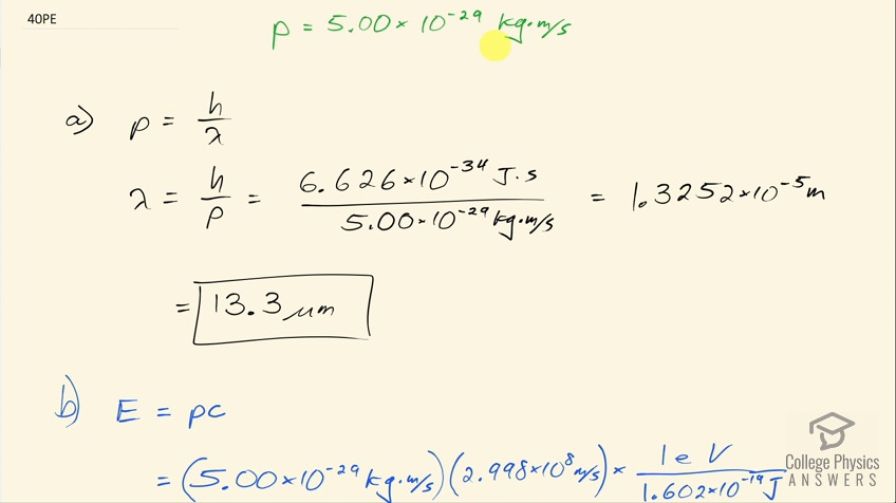 40PE
p = 5.00 × 10⁻²⁹ kg·m/s
a) p = h/λ
λ = h/p = 6.626×10⁻³⁴ J·s / 5.00×10⁻²⁹ kg·m/s = 1.3252×10⁻⁵ m
= 13.3 μm
b) E = pc
= (5.00×10⁻²⁹ kg·m/s)(2.998×10⁸ m/s) × 1 eV / 1.602×10⁻¹⁹ J
College Physics
ANSWERS